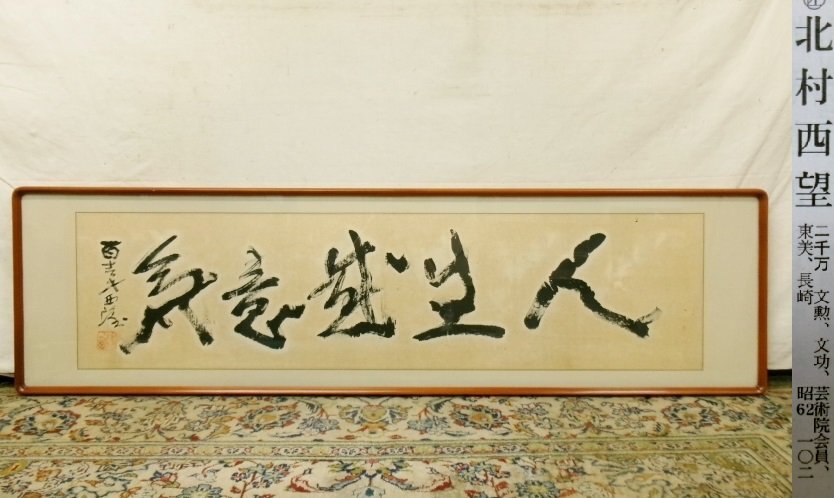 人生感意気
西望
北村西望
二千万 文勲、文功、芸術院会員、
東美、長崎 昭62 一〇二